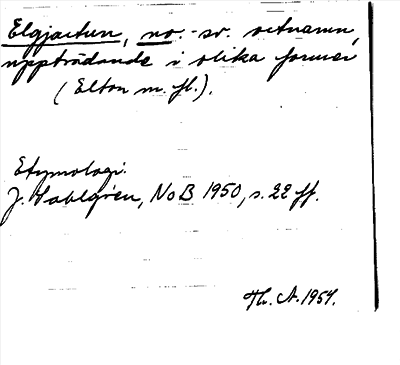 Elgjartun, no.-sv. ortnamn,
uppträdande i olika former
(Elton m. fl.).
Etymologi:
J. Sahlgren, NoB 1950, s. 22 ff.
Th. A. 1954.